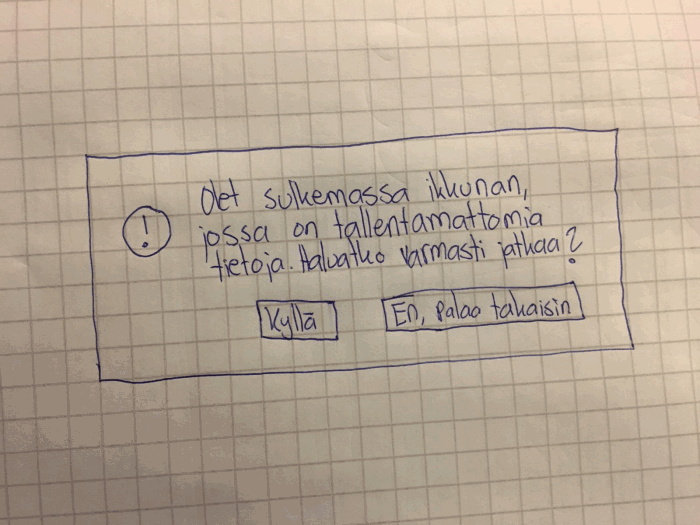 !
Olet sulkemassa ikkunan,
jossa on tallentamattomia
tietoja. Haluatko varmasti jatkaa?
Kyllä
En, palaa takaisin